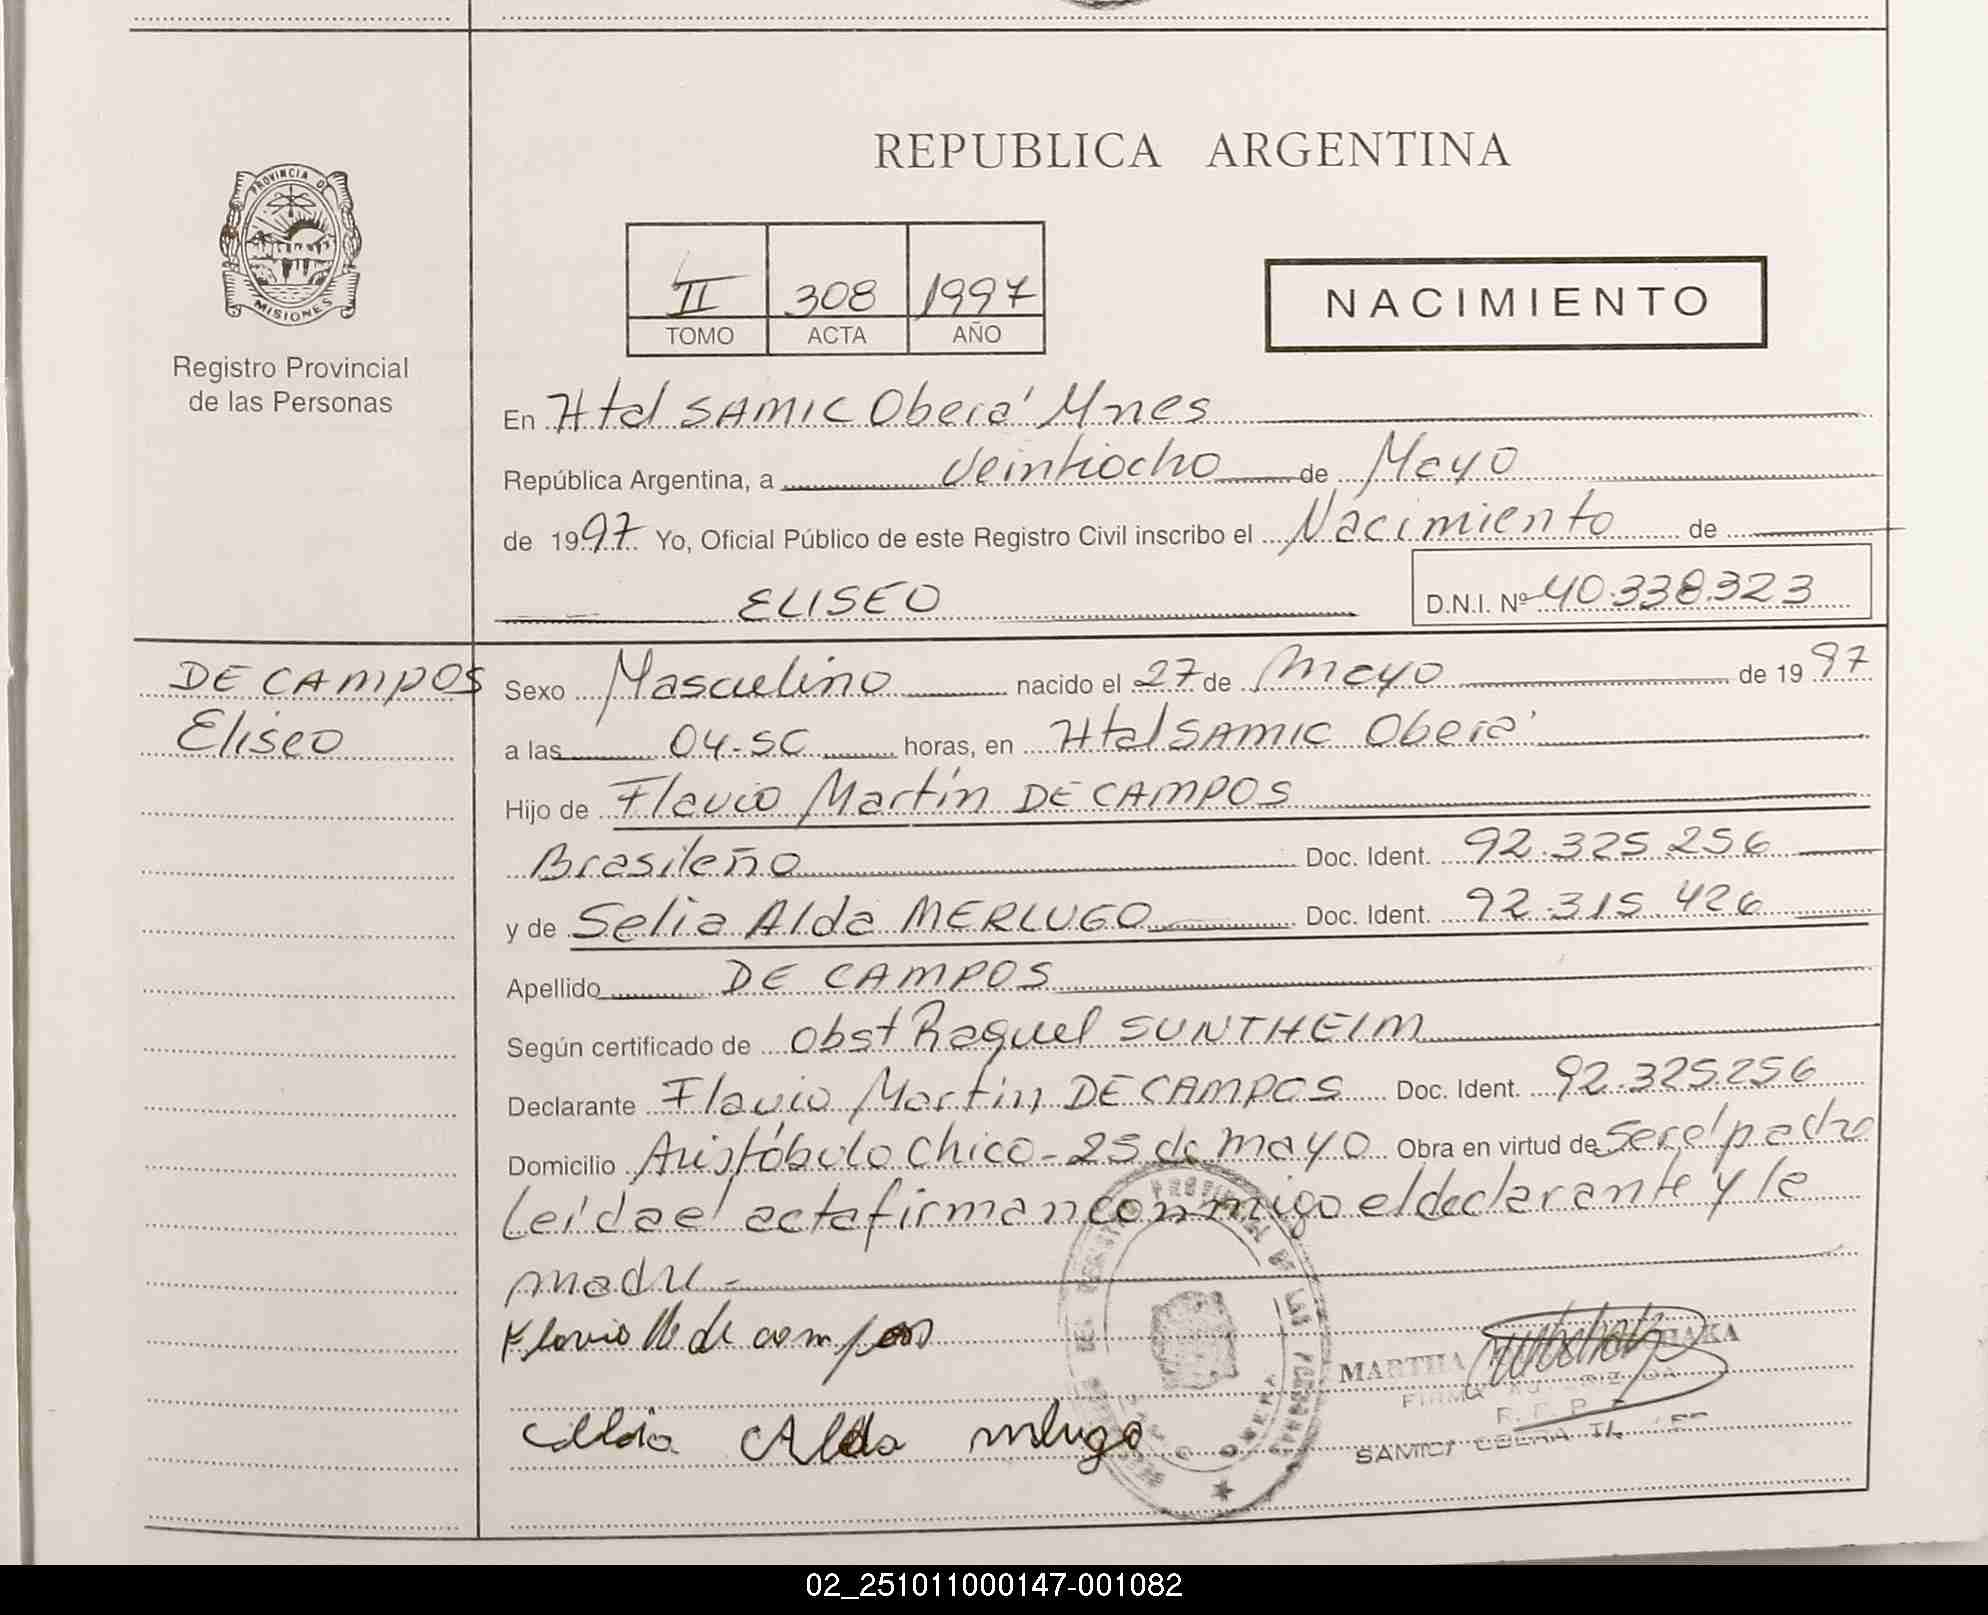 REPUBLICA ARGENTINA
PROVINCIA DE
MISIONES
Registro Provincial
de las Personas
II 308 1997
TOMO ACTA AÑO
NACIMIENTO
En Htal SAMIC Oberá Mnes
República Argentina, a Veintiocho de Mayo
de 1997 Yo, Oficial Público de este Registro Civil inscribo el Nacimiento de
ELISEO D.N.I. Nº 40.338.323
DE CAMPOS
Eliseo
Sexo Masculino nacido el 27 de Mayo de 1997
a las 04-50 horas, en Htal SAMIC Oberá
Hijo de Flavio Martín DE CAMPOS
Brasileño Doc. Ident. 92.325.256
y de Selia Alda MERLUGO Doc. Ident. 92.315.426
Apellido DE CAMPOS
Según certificado de Obst Raquel SUNTHEIM
Declarante Flavio Martin DE CAMPOS Doc. Ident. 92.325.256
Domicilio Aristóbulo Chico - 25 de mayo Obra en virtud de ser el padre
Leída el acta firman conmigo el declarante y la
madre -
Flavio M de campos
MARTHA
Alda
SAMIC OBERA
REGISTRO PROVINCIAL DE LAS PERSONAS
OBERA
02_251011000147-001082